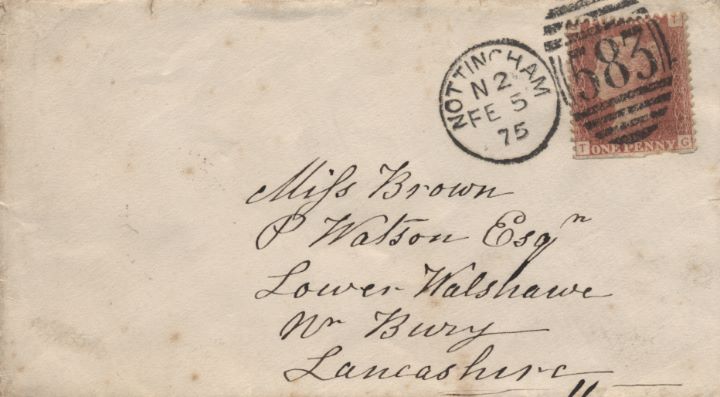 NOTTINGHAM
N 2
FE 5
75
583
T
ONE PENNY
T G
Miſs Brown
P Watson Esqr
Lower Walshawe
Nr Bury
Lancashire